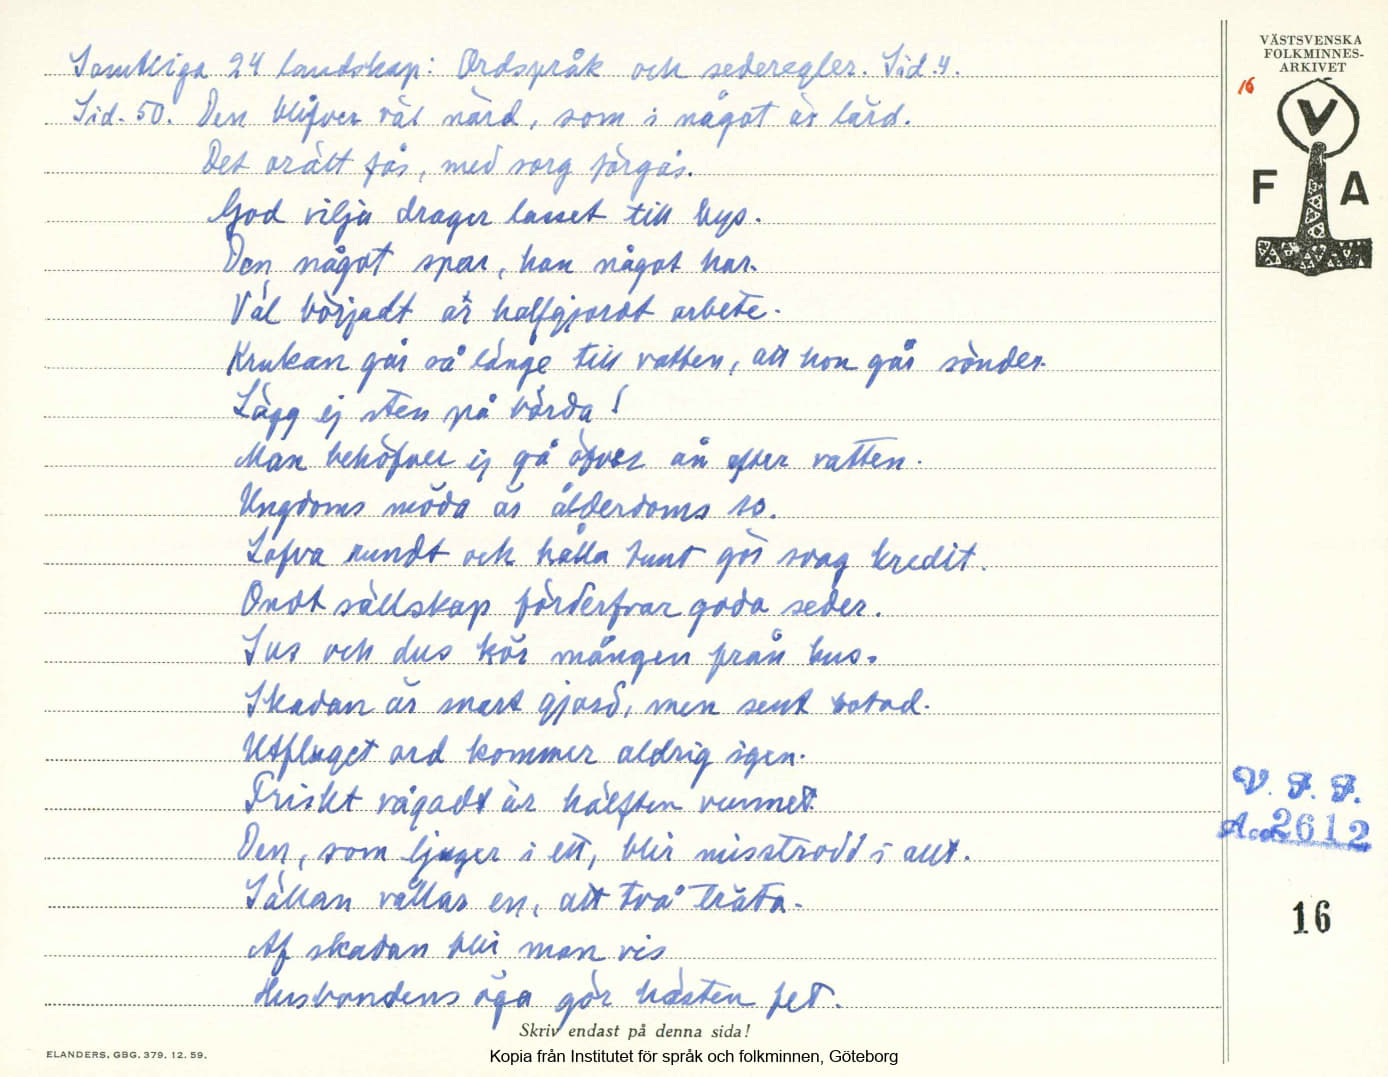 Samtliga 24 landskap: Ordspråk och sederegler. Sid. 4.
Sid. 50. Den blifver väl närd, som i något är lärd.
Det orätt fås, med sorg förgås.
God vilja drager lasset till bys.
Den något spar, han något har.
Väl börjadt är halfgjordt arbete.
Krukan går så länge till vatten, att hon går sönder.
Lägg ej sten på börda!
Man behöfver ej gå öfver ån efter vatten.
Ungdoms möda är ålderdoms ro.
Lofva rundt och hålla tunt gör svag kredit.
Ondt sällskap förderfvar goda seder.
Sus och dus kör mången från hus.
Skadan är snart gjord, men sent botad.
Utfluget ord kommer aldrig igen.
Friskt vågadt är hälften vunnet.
Den, som ljuger i ett, blir misstrodd i allt.
Sällan vållar en, att två träta.
Af skadan blir man vis
Husbondens öga gör hästen fet.
Skriv endast på denna sida!
ELANDERS, GBG. 379. 12. 59.
Kopia från Institutet för språk och folkminnen, Göteborg
VÄSTSVENSKA
FOLKMINNES-
ARKIVET
16
V
F A
V. F. F.
Acc. 2612
16